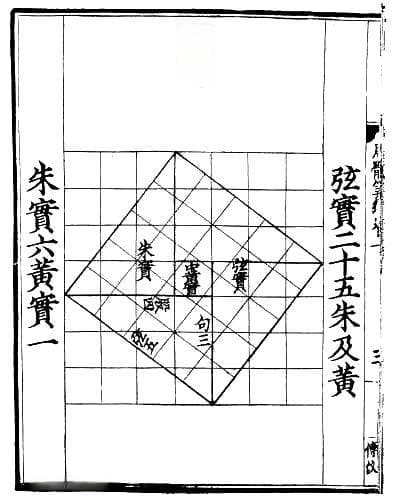 弦實二十五朱及黃
弦實
黃實
朱實
句三
股四
弦五
朱實六黃實一
三